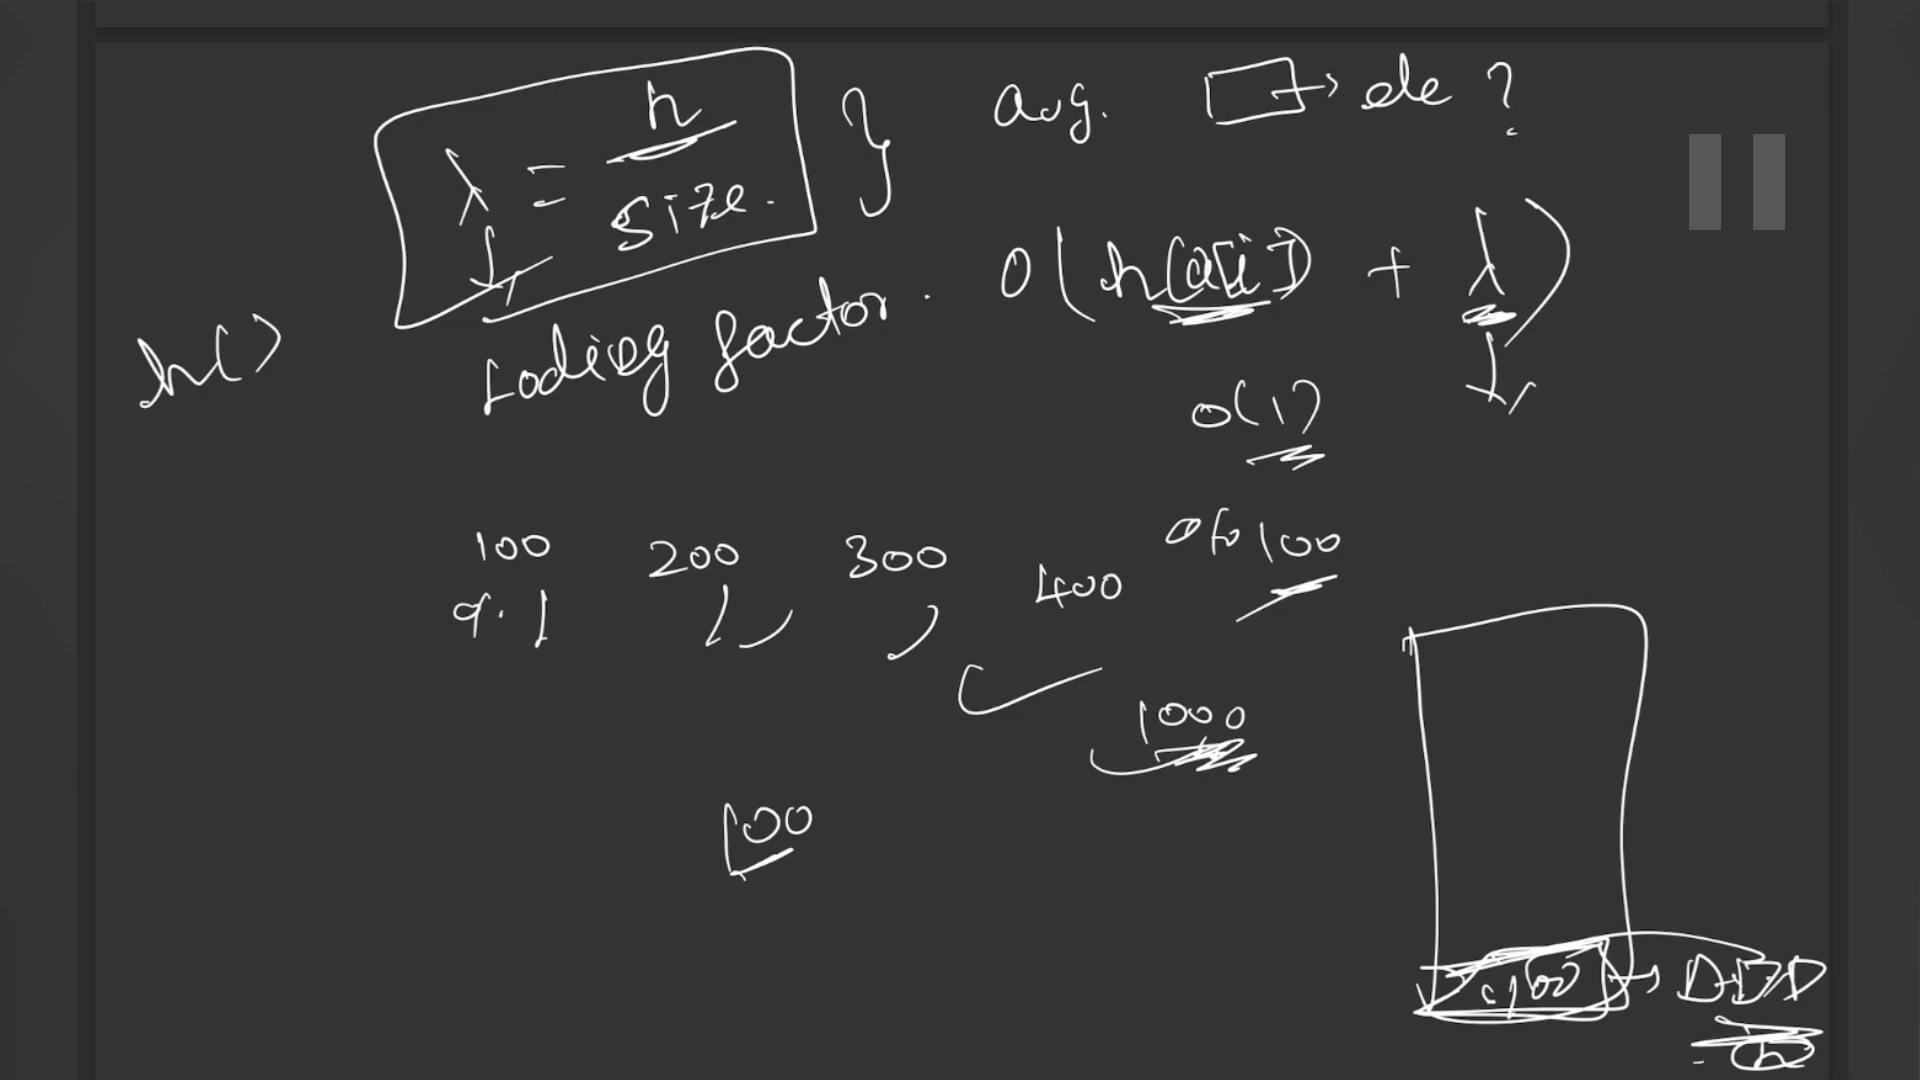 λ = n / size.
avg. → ele ?
h()
Loding factor.
O(h(a[i]) + λ)
O(1)
100 200 300 400
0 to 100
9.1
1000
100
100